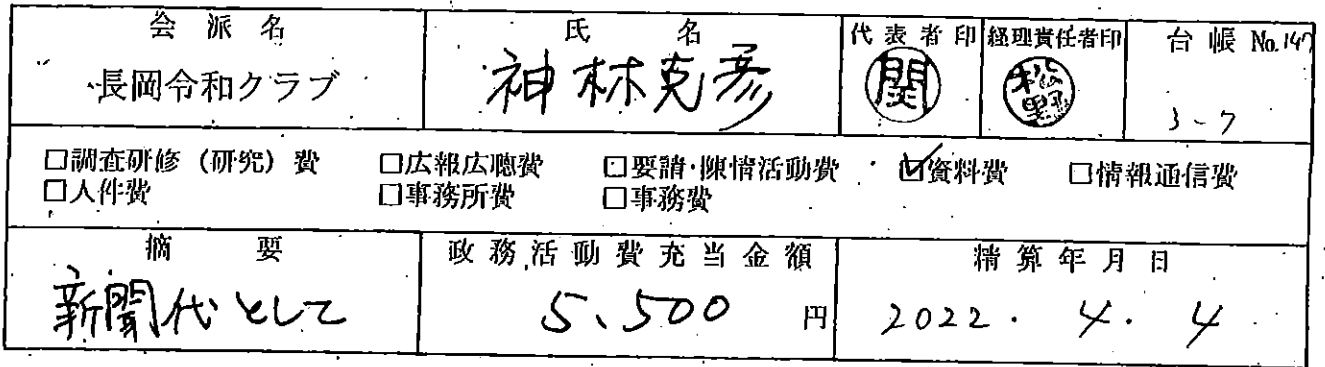 会派名 氏名 代表者印 経理責任者印 台帳 No.147
長岡令和クラブ 神林克彦 関 松野 3-7
□調査研修(研究)費 □広報広聴費 □要請・陳情活動費 ☑資料費 □情報通信費
□人件費 □事務所費 □事務費
摘要 政務活動費充当金額 精算年月日
新聞代として 5,500 円 2022. 4. 4